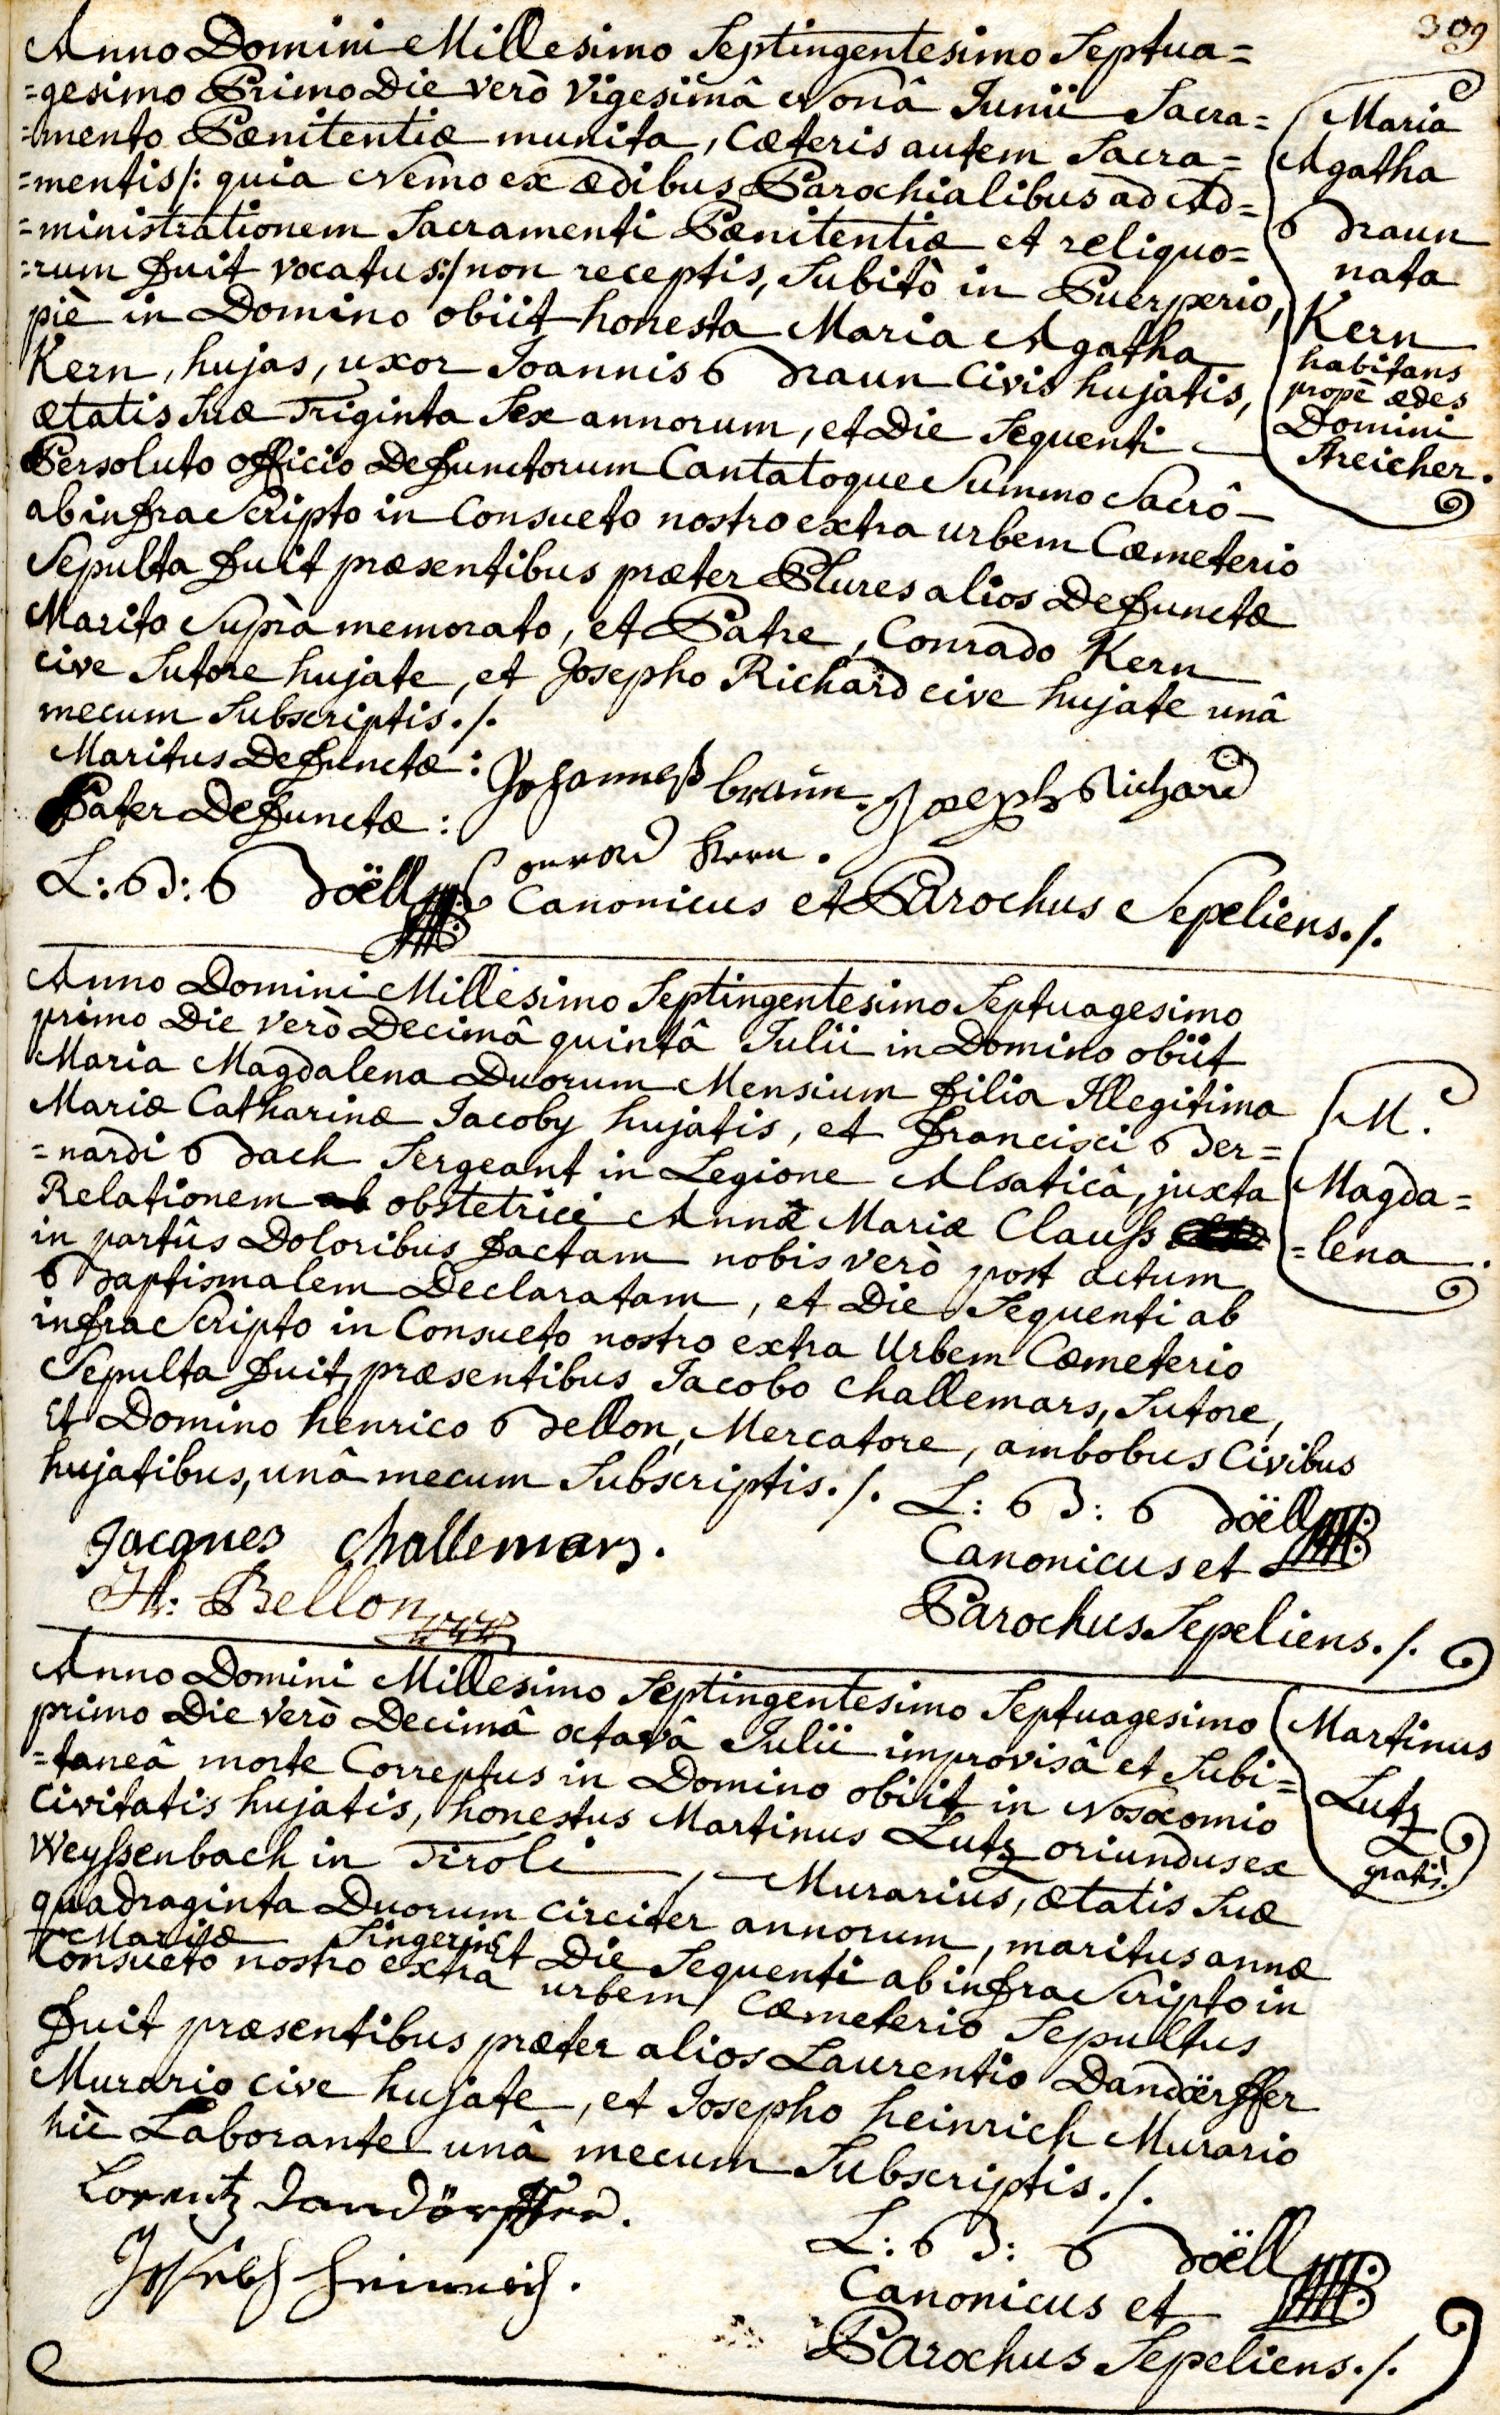 309
Anno Domini Millesimo Septingentesimo Septua=
=gesimo Primo Die verò Vigesimâ Nonâ Junii Sacra=
=mento Pænitentiæ munita, Cæteris autem Sacra=
=mentis /: quia Nemo ex ædibus Parochialibus ad Ad=
=ministrationem Sacramenti Pænitentiæ et reliquo=
=rum fuit vocatus :/ non receptis, Subitò in Puerperio,
piè in Domino obiit honesta Maria Agatha
Kern, hujas, uxor Joannis Braun Civis hujatis,
ætatis Suæ Triginta Sex annorum, et Die Sequenti
Persoluto officio Defunctorum Cantatoque Summo Sacrô
ab infra Scripto in Consueto nostro extra urbem Cæmeterio
Sepulta fuit præsentibus præter Plures alios Defunctæ
Marito Suprà memorato, et Patre, Conrado Kern
cive Sutore hujate, et Josepho Richard cive hujate unâ
mecum Subscriptis ./.
Maria
Agatha
Braun
nata
Kern
habitans
propè ædes
Domini
Streicher.
Maritus Defunctæ : Johanneß braün. Joseph Richard
Pater Defunctæ : Conrad Kern.
L: B: Boëll Canonicus et Parochus Sepeliens ./.
Anno Domini Millesimo Septingentesimo Septuagesimo
primo Die verò Decimâ quintâ Julii in Domino obiit
Maria Magdalena Duorum Mensium filia Illegitima
Mariæ Catharinæ Jacoby hujatis, et Francisci Ber=
=nardi Bach Sergeant in Legione Alsaticâ, juxta
Relationem ab obstetrici Annæ Mariæ Clauß
in partûs Doloribus factam nobis verò post actum
Baptismalem Declaratam, et Die Sequenti ab
infra Scripto in Consueto nostro extra Urbem Cæmeterio
Sepulta fuit, præsentibus Jacobo Challemars, Sutore,
Et Domino henrico Bellon, Mercatore, ambobus Civibus
hujatibus, unâ mecum Subscriptis ./.
M.
Magda=
=lena.
Jacques Challemars.
H: Bellon
L: B: Boëll
Canonicus et
Parochus Sepeliens ./.
Anno Domini Millesimo Septingentesimo Septuagesimo
primo Die verò Decimâ octavâ Julii improvisâ et Subi=
=taneâ morte Correptus in Domino obiit in Nosocomio
Civitatis hujatis, honestus Martinus Lutz oriundus ex
Weyssenbach in Tiroli, Murarius, ætatis Suæ
quadraginta Duorum circiter annorum, maritus annæ
Mariæ Singerin Et Die Sequenti ab infra Scripto in
Consueto nostro extra urbem Cæmeterio Sepultus
fuit præsentibus præter alios Laurentio Dandörffer
Murario cive hujate, et Josepho heinrich Murario
hîc Laborante unâ mecum Subscriptis ./.
Martinus
Lutz
gratis.
Lorentz Dandörffer.
Joseph Heinrich.
L: B: Boëll
Canonicus et
Parochus Sepeliens ./.